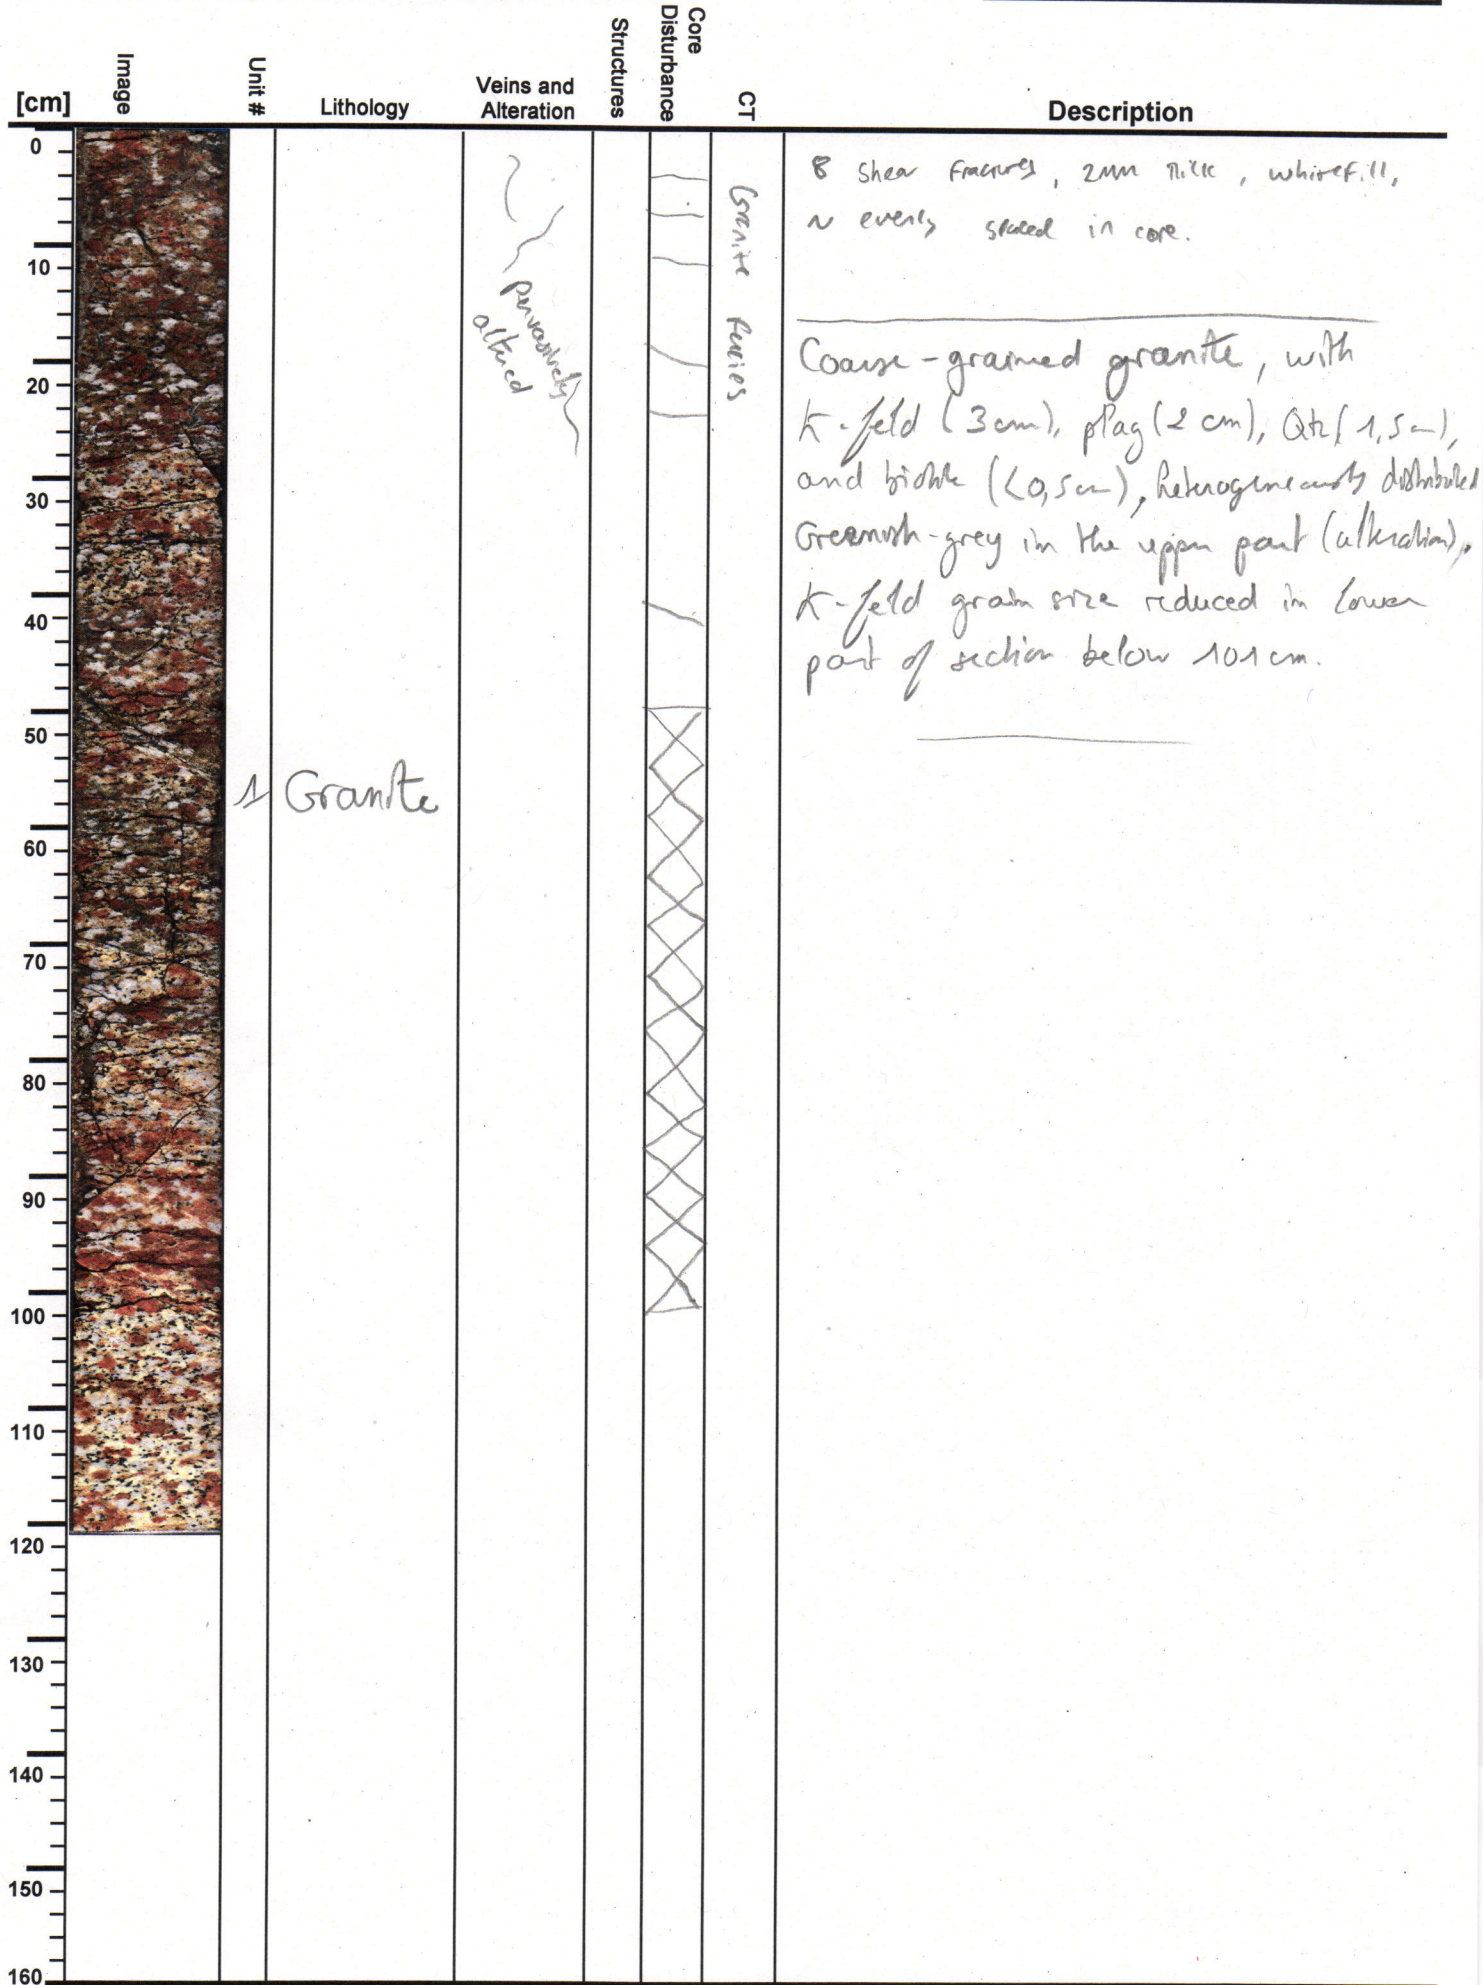 [cm]
Image
Unit #
Lithology
Veins and
Alteration
Structures
Core
Disturbance
CT
Description
0
10
20
30
40
50
60
70
80
90
100
110
120
130
140
150
160
1
Granite
pervasively
altered
Granite Facies
8 shear fractures, 2mm thick, white fill,
~ evenly spaced in core.
Coarse-grained granite, with
K-feld (3cm), plag (2 cm), Qtz (1,5cm),
and biotite (<0,5cm), heterogeneously distributed
Greenish-grey in the upper part (alteration).
K-feld grain size reduced in lower
part of section below 101 cm.